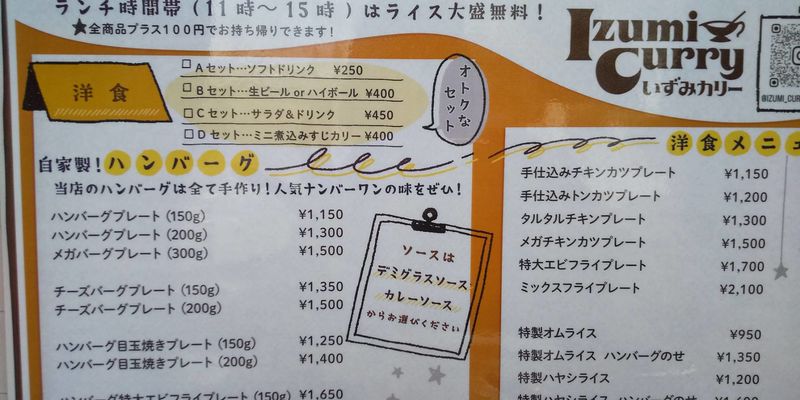 ランチ時間帯(11時〜15時)はライス大盛無料!
★全商品プラス100円でお持ち帰りできます!
Izumi Curry
いずみカリー
洋食
□Aセット…ソフトドリンク ¥250
□Bセット…生ビールorハイボール ¥400
□Cセット…サラダ&ドリンク ¥450
□Dセット…ミニ煮込みすじカリー ¥400
オトクな
セット
自家製!ハンバーグ
当店のハンバーグは全て手作り!人気ナンバーワンの味をぜひ!
ハンバーグプレート(150g) ¥1,150
ハンバーグプレート(200g) ¥1,300
メガバーグプレート(300g) ¥1,500
チーズバーグプレート(150g) ¥1,350
チーズバーグプレート(200g) ¥1,500
ハンバーグ目玉焼きプレート(150g) ¥1,250
ハンバーグ目玉焼きプレート(200g) ¥1,400
ハンバーグ特大エビフライプレート(150g) ¥1,650
ソースは
デミグラスソース
カレーソース
からお選びください
@IZUMI_CUR
洋食メニュ
手仕込みチキンカツプレート ¥1,150
手仕込みトンカツプレート ¥1,200
タルタルチキンプレート ¥1,300
メガチキンカツプレート ¥1,500
特大エビフライプレート ¥1,700
ミックスフライプレート ¥2,100
特製オムライス ¥950
特製オムライス ハンバーグのせ ¥1,350
特製ハヤシライス ¥1,200
特製ハヤシライス ハンバーグのせ